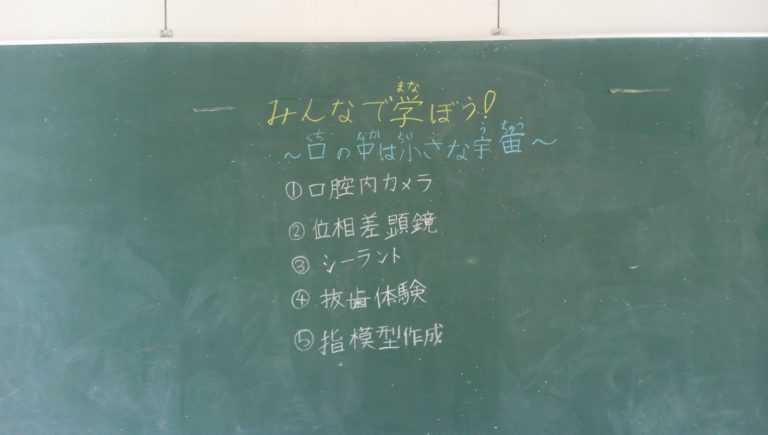 みんなで学ぼう!
～口の中は小さな宇宙～
①口腔内カメラ
②位相差顕鏡
③シーラント
④抜歯体験
⑤指模型作成